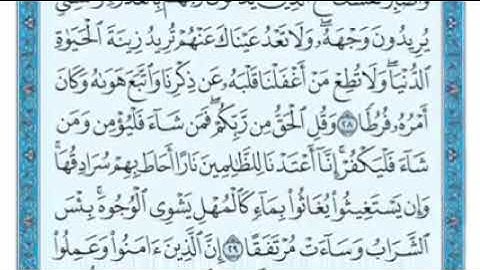 يُرِيدُونَ وَجْهَهُۥ ۖ وَلَا تَعْدُ عَيْنَاكَ عَنْهُمْ تُرِيدُ زِينَةَ ٱلْحَيَوٰةِ
ٱلدُّنْيَا ۖ وَلَا تُطِعْ مَنْ أَغْفَلْنَا قَلْبَهُۥ عَن ذِكْرِنَا وَٱتَّبَعَ هَوَىٰهُ وَكَانَ
أَمْرُهُۥ فُرُطًا ٢٨ وَقُلِ ٱلْحَقُّ مِن رَّبِّكُمْ ۖ فَمَن شَآءَ فَلْيُؤْمِن وَمَن
شَآءَ فَلْيَكْفُرْ ۚ إِنَّآ أَعْتَدْنَا لِلظَّٰلِمِينَ نَارًا أَحَاطَ بِهِمْ سُرَادِقُهَا ۚ
وَإِن يَسْتَغِيثُوا۟ يُغَاثُوا۟ بِمَآءٍ كَٱلْمُهْلِ يَشْوِى ٱلْوُجُوهَ ۚ بِئْسَ
ٱلشَّرَابُ وَسَآءَتْ مُرْتَفَقًا ٢٩ إِنَّ ٱلَّذِينَ ءَامَنُوا۟ وَعَمِلُوا۟